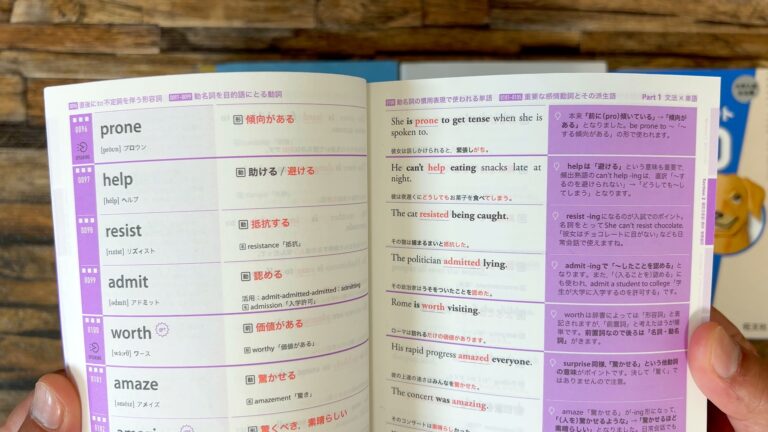 直後にto不定詞を伴う形容詞 動名詞を目的語にとる動詞
0096
prone
[próun] プロウン
傾向がある
0097
help
[hélp] ヘルプ
動 助ける / 避ける
0098
resist
[rɪzíst] リズィスト
動 抵抗する
名 resistance「抵抗」
0099
admit
[ədmít] アドミット
動 認める
活用:admit-admitted-admitted:admitting
名 admission「入学許可」
0100
worth
[wə́ːrθ] ワース
価値がある
worthy「価値がある」
0101
amaze
[əméɪz] アメイズ
動 驚かせる
名 amazement「驚き」
0102
驚くべき、素晴らしい
動名詞の慣用表現で使われる単語 重要な感情動詞とその派生語 Part 1 文法×単語
She is prone to get tense when she is
spoken to.
彼女は話しかけられると、緊張しがち。
He can't help eating snacks late at
night.
彼は夜遅くにどうしてもお菓子を食べてしまう。
The cat resisted being caught.
その猫は捕まるまいと抵抗した。
The politician admitted lying.
その政治家はうそをついたことを認めた。
Rome is worth visiting.
ローマは訪れるだけの価値があります。
His rapid progress amazed everyone.
彼の上達の速さはみんなを驚かせた。
The concert was amazing.
そのコンサートは素晴らしかった
本来「前に(pro)傾いている」→「傾向が
ある」となりました。be prone to ~「~
する傾向がある」の形で使われます。
helpは「避ける」という意味も重要で、
頻出熟語のcan't help -ingは、直訳「~す
るのを避けられない」→「どうしても~し
てしまう」となります。
resist -ingになるのが入試でのポイント。
名詞をとってShe can't resist chocolate.
「彼女はチョコレートに目がない」なども日
常会話で使えますね。
admit -ingで「~したことを認める」と
なります。また、「(入ること)認める」に
も使われ、admit a student to college「学
生が大学に入学するのを許可する」です。
worthは辞書によっては「形容詞」と表
記されますが、「前置詞」と考えたほうが簡
単です。前置詞なので後ろは「名詞・動名
詞」がきます。
surprise同様、「驚かせる」という他動詞
の意味がポイントです。決して「驚く」で
はありませんので注意。
amaze「驚かせる」が-ing形になって、
「(人を)驚かせるような」→「驚かせるほど
素晴らしい」となりました。日常会話でも